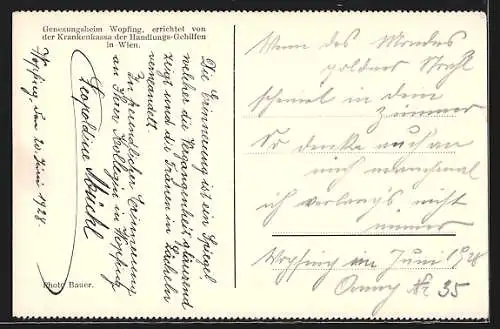 Genesungsheim Wopfing, errichtet von
der Krankenkassa der Handlungs-Gehilfen
in Wien.
Die Erinnerung ist ein Spiegel,
welcher die Vergangenheit glänzend
zeigt und die Tränen in Lächeln
verwandelt.
In freundlicher Erinnerung
an Ihre Kollegin in Wopfing
Leopoldine
Wopfing, den 20. Juni 1928.
Photo Bauer.
Wenn des Mondes
goldner Strahl
scheint in dein
Zimmer
So denke auch an
mich manchmal
ich verlang's nicht
immer
Wopfing im Juni 1928
Nr 35